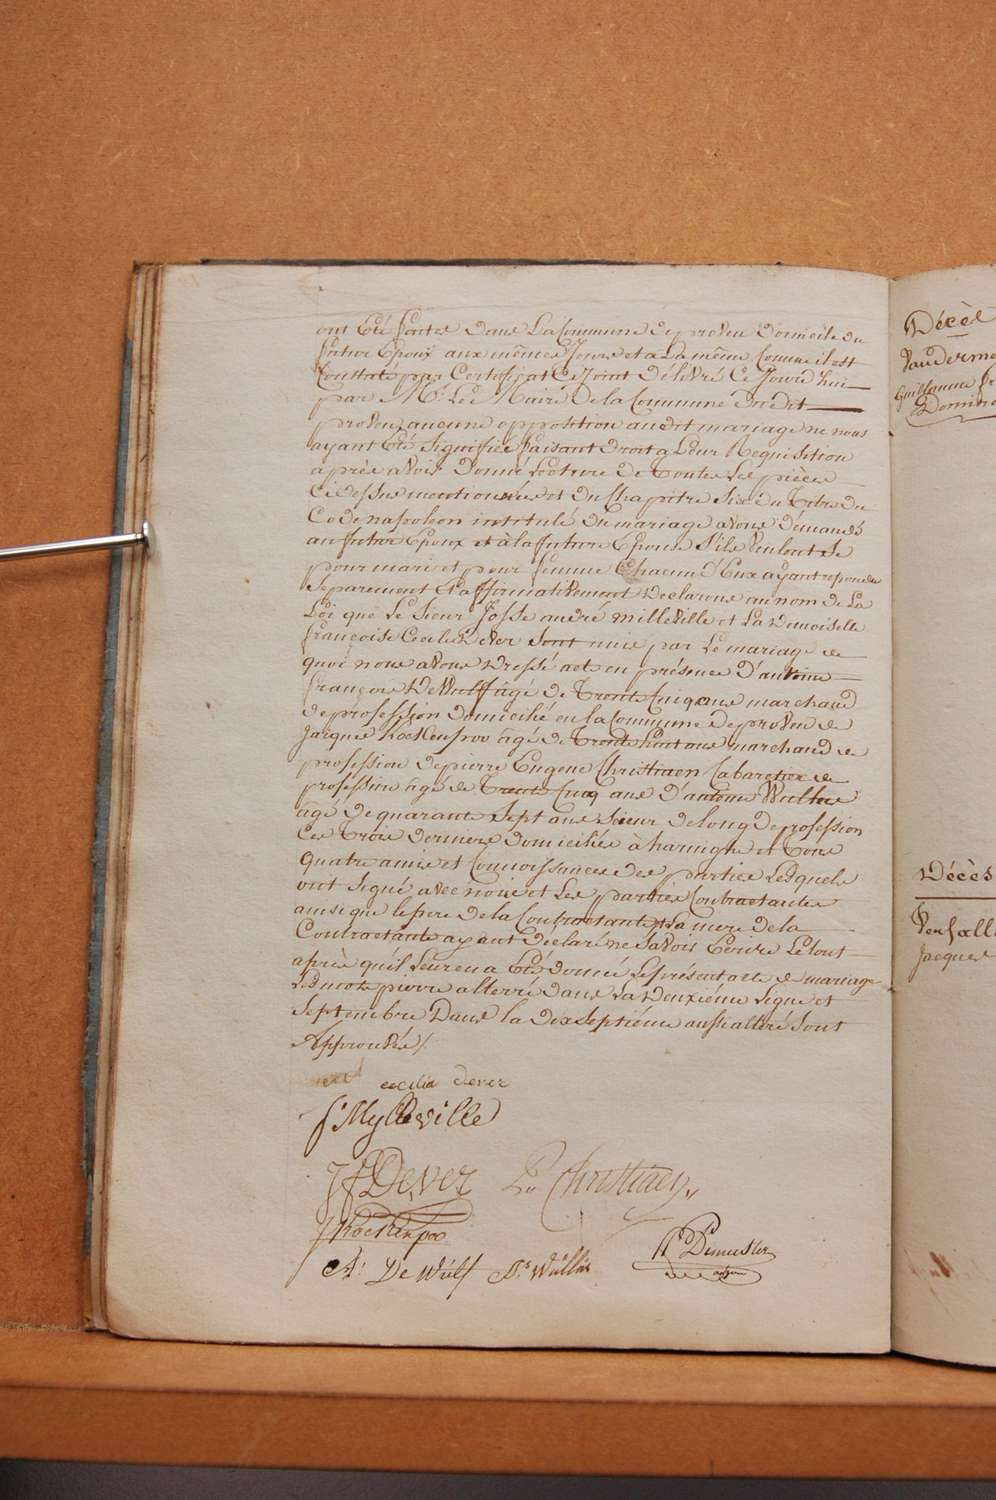 ont été faites dans la Commune de proven domicile du
futur Epoux aux mêmes Jours et a la même Comme il est
Constaté par Certificat Ci Joint délivré Ce Jourd'hui
par Mr Le Maire de la Commune dudit
proven, aucune opposition audit mariage ne nous
ayant été signifiée faisant droit a Leur Requisition
après avoir donné Lecture de toutes Les pièces
Ci dessus mentionnées et du Chapitre Six du Titre du
Code napoleon intitulé du mariage avons demandé
au futur Epoux et à la future Epouse S'ils veulent se
pour mari et pour femme Chacun d'Eux ayant repondu
Separement et affirmativement Declarons au nom de La
Loi que Le Sieur Josse andré milleville et La Demoiselle
françoise Cecile Dever sont unis par Le mariage de
quoi nous avons Dressé acte en présence D'antoine
françois De Wulf âgé de Trente Cinq ans marchand
de profession domicilié en la Commune de proven de
Jacques Koekenpoo âgé de Trente huit ans marchand de
profession de pierre Eugene Christiaen Cabaretier de
profession âgé de Trente Cinq ans D'antoine Wullus
âgé de quarante Sept ans Scieur de long de profession
Ces Trois derniers domiciliés à haringhe et Tous
quatre amis et Connoissances des parties Lesquels
ont signé avec nous et Les parties Contractantes
ainsi que le pere de la Contractante La mere de la
Contractante ayant declaré ne savoir Ecrire Le tout
après qu'il Leur en a été donné Le présent acte de mariage
Les mots pierre alterré dans La Deuxiéme Ligne et
Septembre Dans la dix septiéme aussi alteré sont
Approuvés /.
cecilia dever
J: Mylleville
J f Dever P: E: Christiaen
J Koekenpoo
A: De Wulf A: Wullus
Décès
Vanderme
Guillaume
Domini
Décès
Jacques